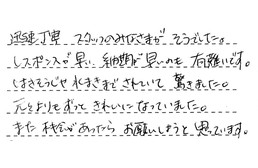 迅速丁寧 スタッフのみなさまが そうでした。
レスポンスが早い、納期が早いのも 有難いです。
はきそうじや水まきまでされていて 驚きました。
元よりもずっと きれいに なっていました。
また 機会があったら お願いしようと 思っています。